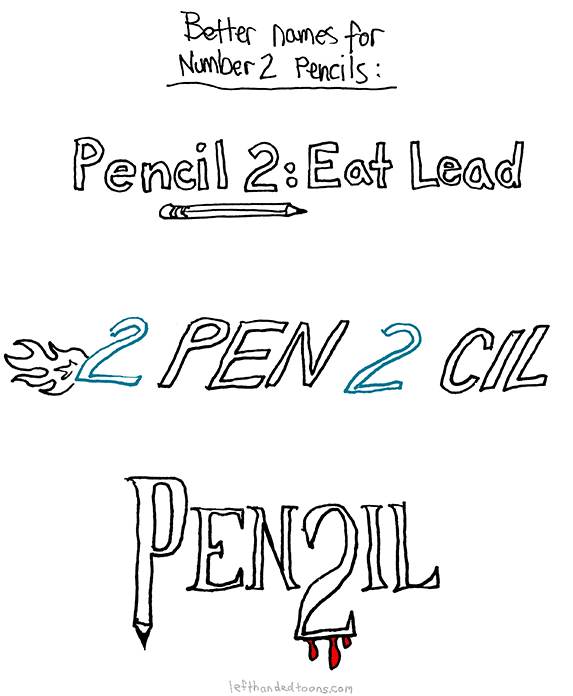 Better names for
Number 2 Pencils:
Pencil 2: Eat Lead
2 PEN 2 CIL
PEN2IL
lefthandedtoons.com